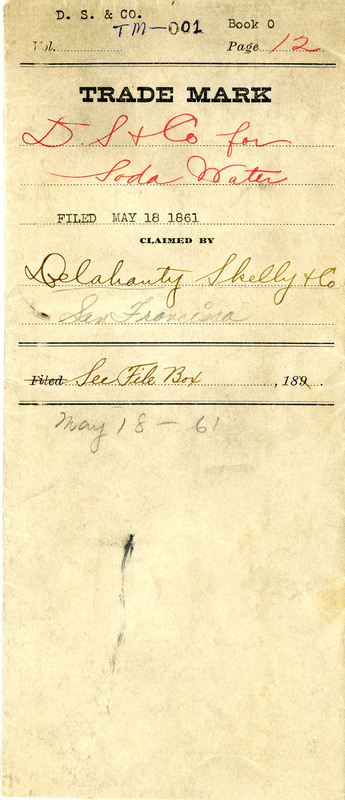 D. S. & CO.
TM-001
Book 0
Vol.
Page 12
TRADE MARK
D. S & Co for
Soda Water
FILED MAY 18 1861
CLAIMED BY
Delahanty Skelly & Co
San Francisco
Filed See File Box , 189
May 18 - 61